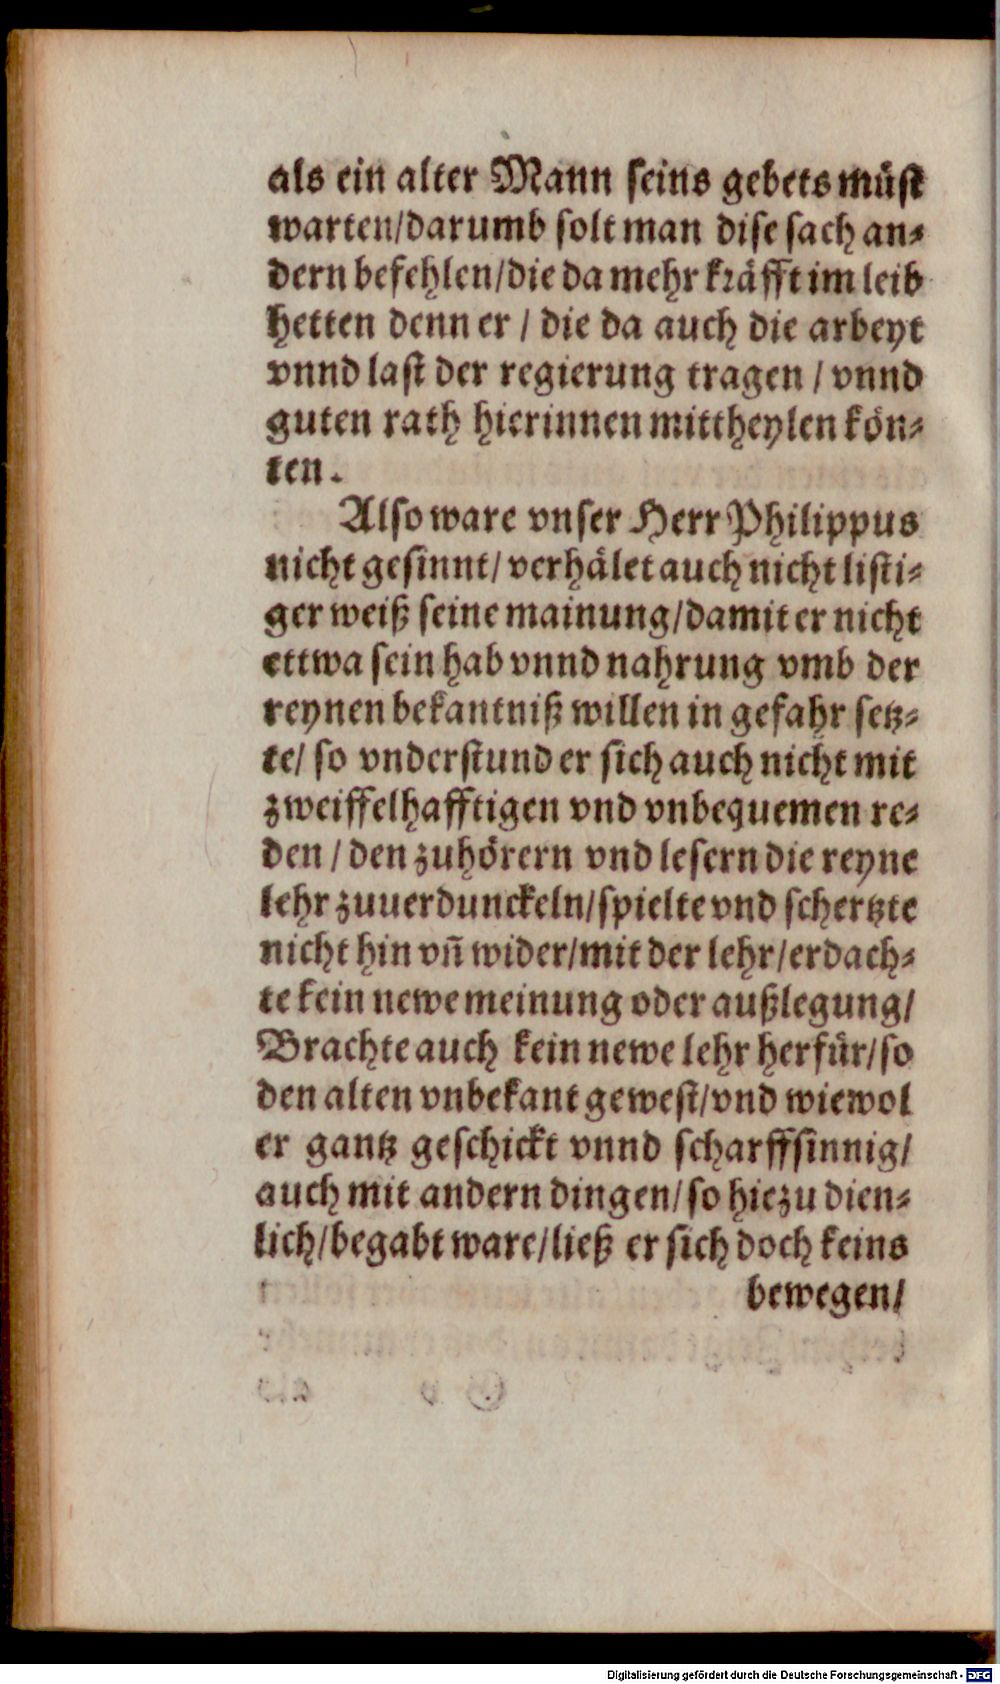 als ein alter Mann seins gebets müst
warten/darumb solt man dise sach an⸗
dern befehlen/die da mehr kräfft im leib
hetten denn er / die da auch die arbeyt
vnnd last der regierung tragen / vnnd
guten rath hierinnen mittheylen kön⸗
ten.
Also ware vnser Herr Philippus
nicht gesinnt/ verhälet auch nicht listi⸗
ger weiß seine mainung/damit er nicht
ettwa sein hab vnnd nahrung vmb der
reynen bekantniß willen in gefahr setz⸗
te/ so vnderstund er sich auch nicht mit
zweiffelhafftigen vnd vnbequemen re⸗
den / den zuhörern vnd lesern die reyne
lehr zuuerdunckeln/spielte vnd schertzte
nicht hin vñ wider/mit der lehr/erdach⸗
te kein newe meinung oder außlegung/
Brachte auch kein newe lehr herfür/so
den alten vnbekant gewest/vnd wiewol
er gantz geschickt vnnd scharffsinnig/
auch mit andern dingen/so hiezu dien⸗
lich/begabt ware/ließ er sich doch keins
bewegen/
Digitalisierung gefördert durch die Deutsche Forschungsgemeinschaft - DFG